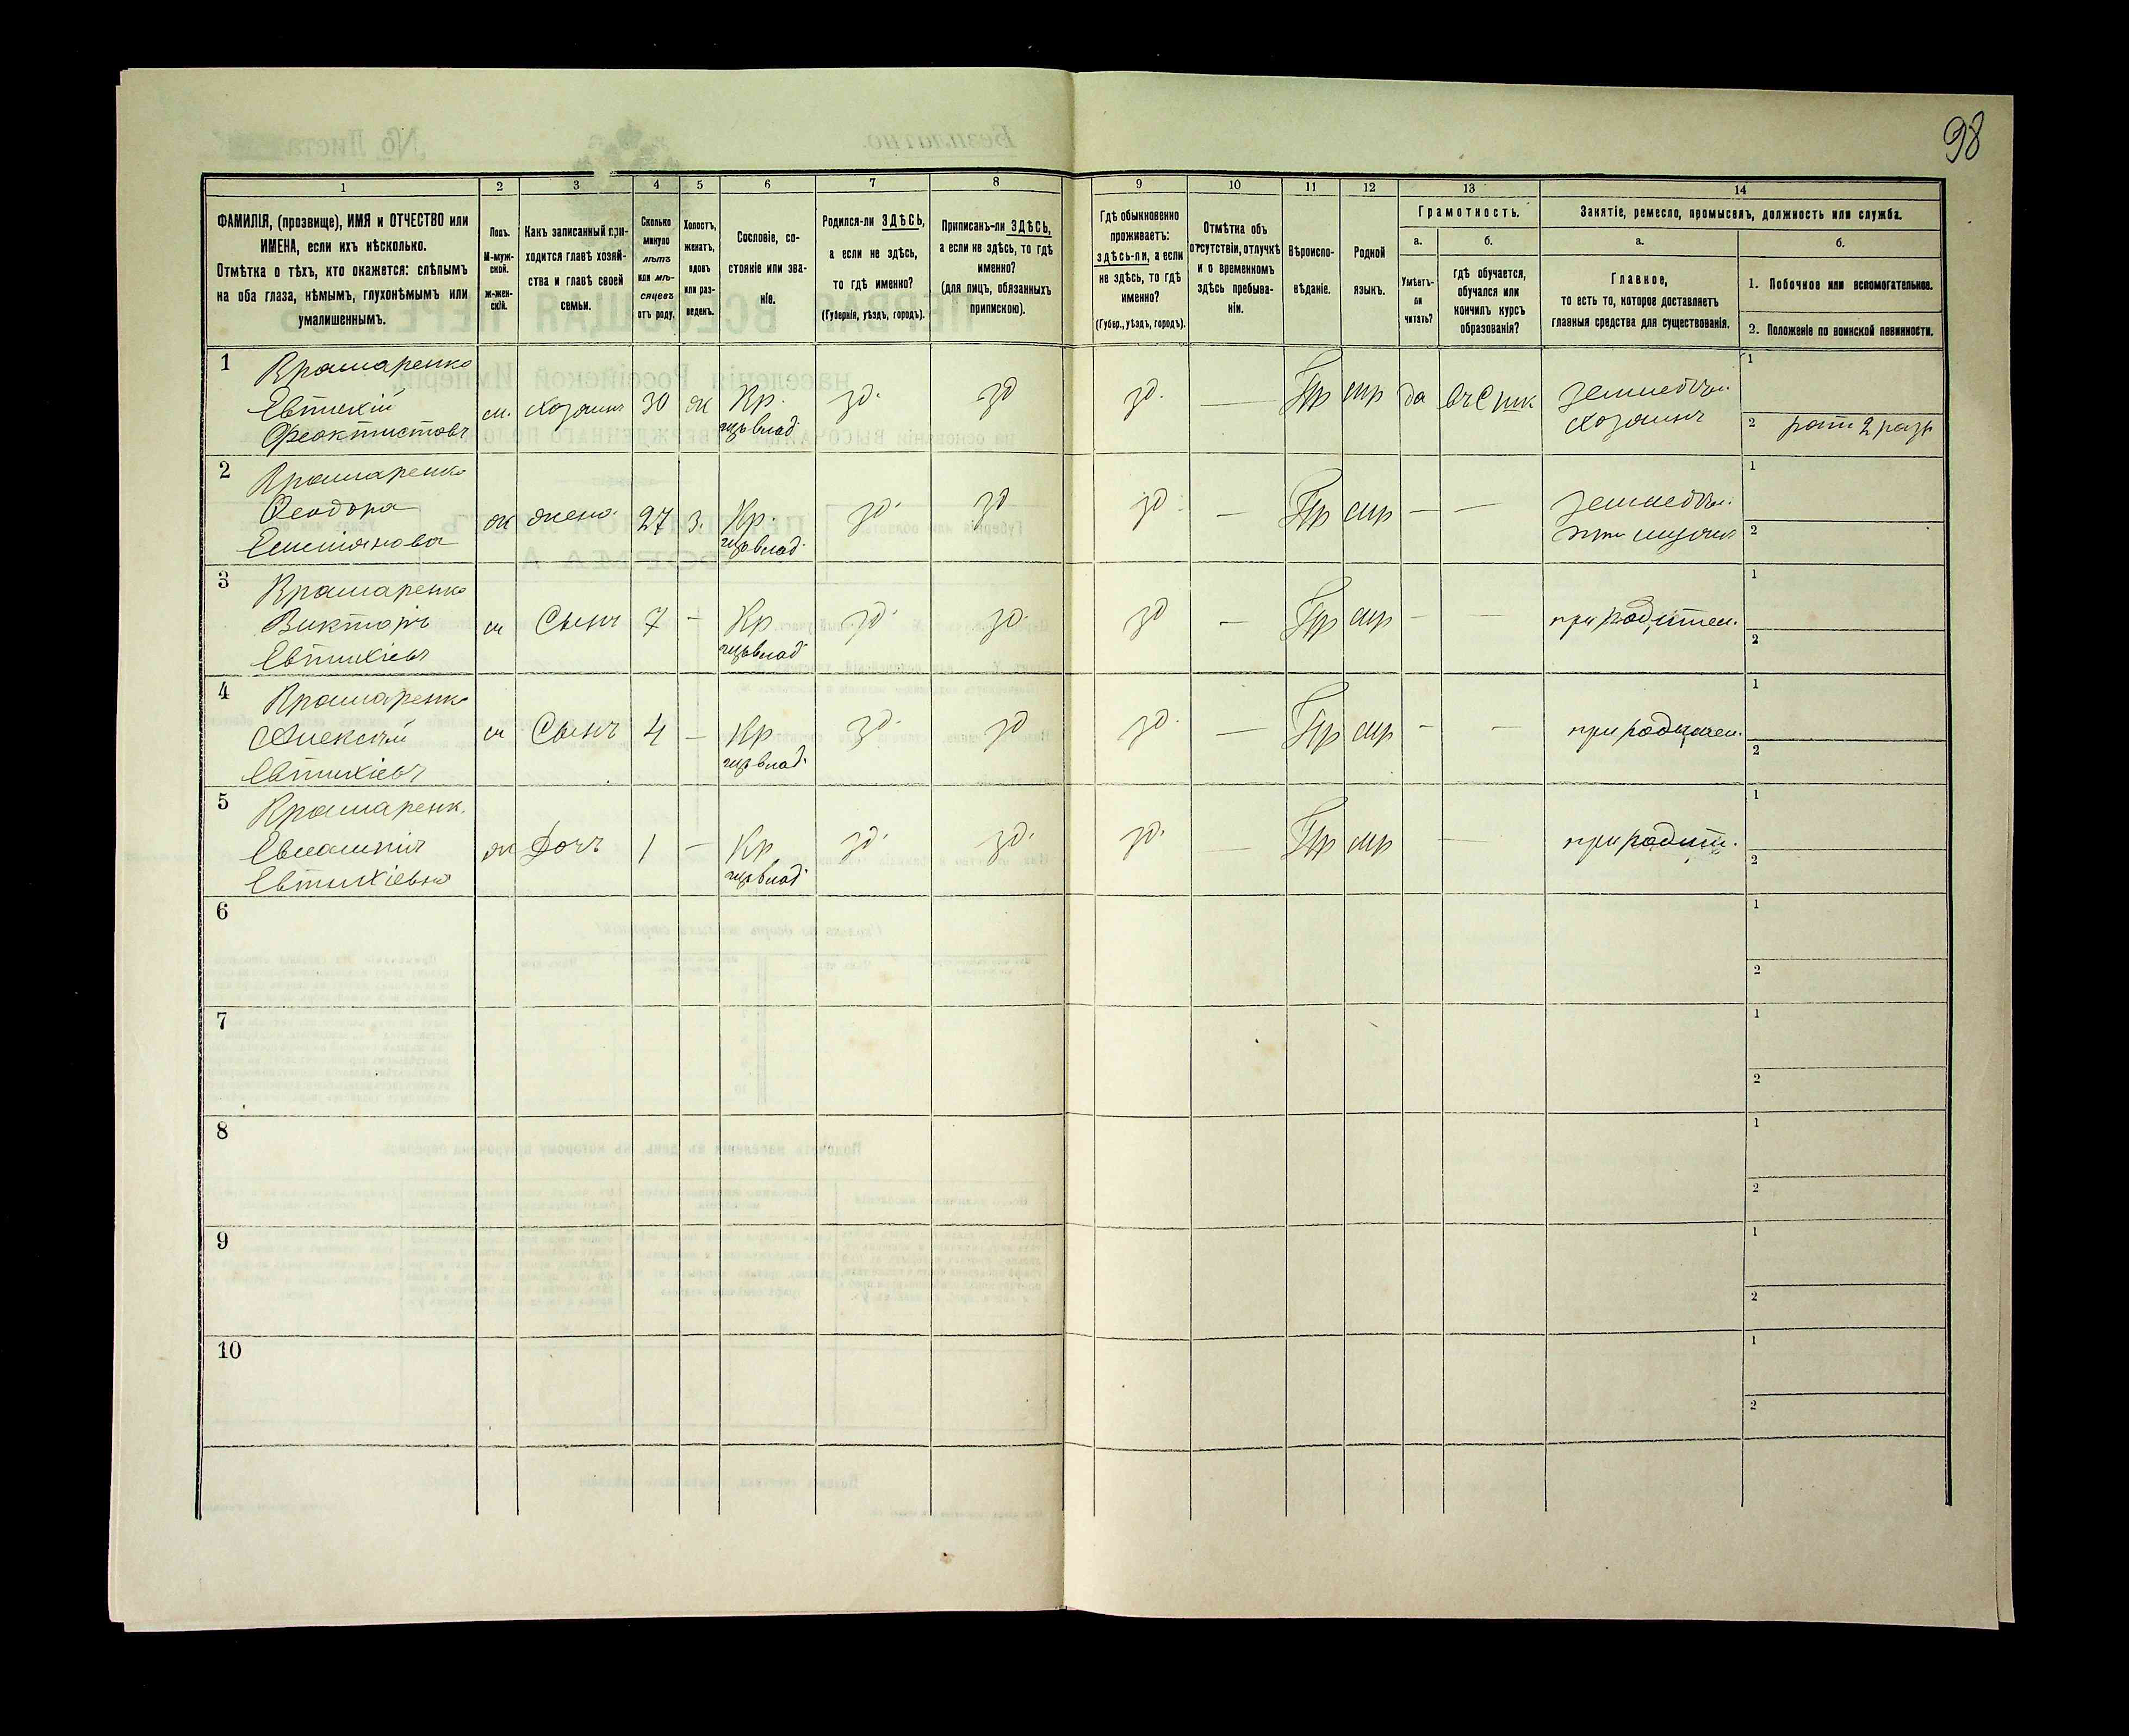 98
1
2
3
4
5
6
7
8
9
10
11
12
13
14
ФАМИЛІЯ, (прозвище), ИМЯ и ОТЧЕСТВО или
ИМЕНА, если ихъ нѣсколько.
Отмѣтка о тѣхъ, кто окажется: слѣпымъ
на оба глаза, нѣмымъ, глухонѣмымъ или
умалишеннымъ.
Полъ.
М-муж-
ской.
ж-жен-
скій.
Какъ записанный при-
ходится главѣ хозяй-
ства и главѣ своей
семьи.
Сколько
минуло
лѣтъ
или мѣ-
сяцевъ
отъ роду.
Холостъ,
женатъ,
вдовъ
или раз-
веденъ.
Сословіе, со-
стояніе или зва-
ніе.
Родился-ли ЗДѢСЬ,
а если не здѣсь,
то гдѣ именно?
(Губернія, уѣздъ, городъ).
Приписанъ-ли ЗДѢСЬ,
а если не здѣсь, то гдѣ
именно?
(для лицъ, обязанныхъ
припискою).
Гдѣ обыкновенно
проживаетъ:
здѣсь-ли, а если
не здѣсь, то гдѣ
именно?
(Губер., уѣздъ, городъ).
Отмѣтка объ
отсутствіи, отлучкѣ
и о временномъ
здѣсь пребыва-
ніи.
Вѣроиспо-
вѣданіе.
Родной
языкъ.
Грамотность.
а.
Умѣетъ-
ли
читать?
б.
гдѣ обучается,
обучался или
кончилъ курсъ
образованія?
Занятіе, ремесло, промыселъ, должность или служба.
а.
Главное,
то есть то, которое доставляетъ
главныя средства для существованія.
б.
1. Побочное или вспомогательное.
2. Положеніе по воинской повинности.
1
Крамаренко
Евтихій
Феоктистовъ
м. хозяинъ 30 ж Кр. зд. зд зд. — Пр мр да землед.
хозяинъ
1
2 рат 2 разр
2
Крамаренко
Феодора
Емельянова
ж жена 27 з. Кр. зд. зд зд. — Пр мр — — землед.
при мужѣ
1
2
3
Крамаренко
Викторъ
Евтихіевъ
м Сынъ 7 — Кр зд. зд. зд — Пр мр — — при родител.
1
2
4
Крамаренко
Алексѣй
Евтихіевъ
м Сынъ 4 — Кр зд. зд зд. — Пр мр — — при родител.
1
2
5
Крамаренк.
Евлампія
Евтихіевна
ж Дочь 1 — Кр зд. зд. зд. — Пр мр — при родит.
1
2
6
1
2
7
1
2
8
1
2
9
1
2
10
1
2